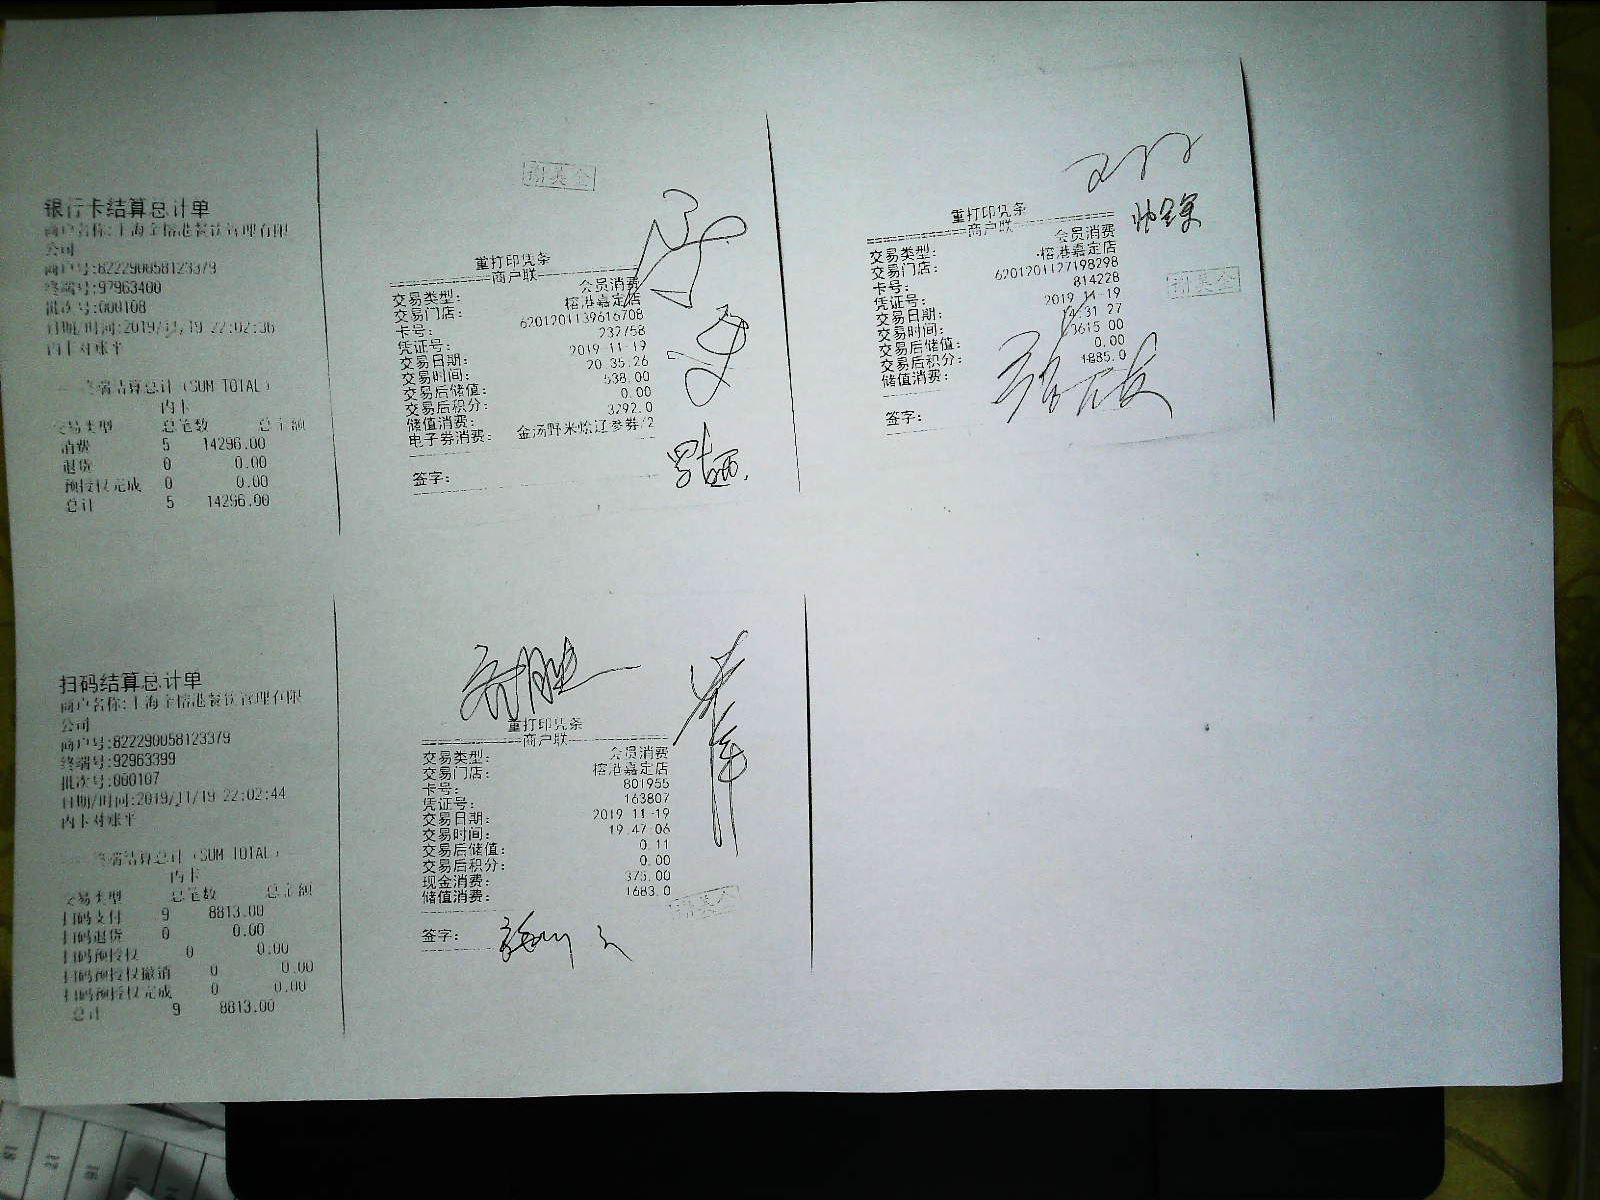 银行卡结算总计单
商户名称:上海金榕港餐饮管理有限
公司
商户号:822290058123379
终端号:92963400
批次号:000108
日期/时间:2019/11/19 22:02:36
内卡对账平
终端结算总计(SUM TOTAL)
内卡
交易类型 总笔数 总金额
消费 5 14296.00
退货 0 0.00
预授权完成 0 0.00
总计 5 14296.00
谢英全
重打印凭条
商户联
交易类型: 会员消费
交易门店: 榕港嘉定店
卡号: 6201201139616708
凭证号: 232758
交易日期: 2019-11-19
交易时间: 20:35:26
交易后储值: 538.00
交易后积分: 0.00
储值消费: 3292.0
电子券消费: 金汤野米烩辽参券/2
签字:
重打印凭条
商户联
交易类型: 会员消费
交易门店: 榕港嘉定店
卡号: 6201201127198298
凭证号: 814228
交易日期: 2019-11-19
交易时间: 14:31:27
交易后储值: 3615.00
交易后积分: 0.00
储值消费: 1885.0
签字:
谢英全
扫码结算总计单
商户名称:上海金榕港餐饮管理有限
公司
商户号:822290058123379
终端号:92963399
批次号:000107
日期/时间:2019/11/19 22:02:44
内卡对账平
终端结算总计(SUM TOTAL)
内卡
交易类型 总笔数 总金额
扫码支付 9 8813.00
扫码退货 0 0.00
扫码预授权 0 0.00
扫码预授权撤销 0 0.00
扫码预授权完成 0 0.00
总计 9 8813.00
重打印凭条
商户联
交易类型: 会员消费
交易门店: 榕港嘉定店
卡号: 801955
凭证号: 163807
交易日期: 2019-11-19
交易时间: 19:47:06
交易后储值: 0.11
交易后积分: 0.00
现金消费: 375.00
储值消费: 1683.0
签字: